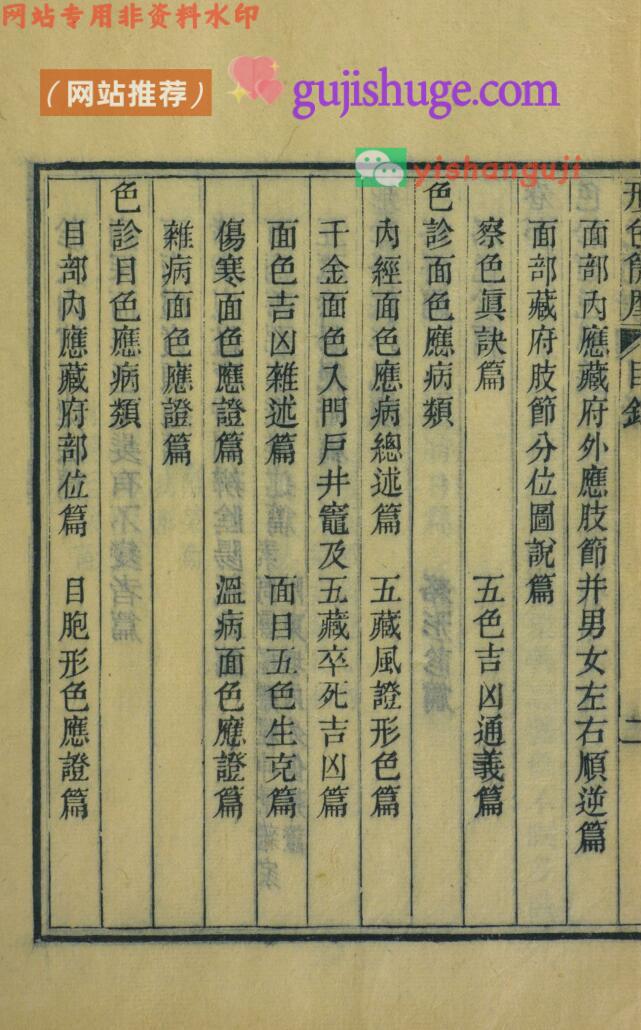 网站专用非资料水印
（网站推荐）
gujishuge.com
yishanguji
形色簡摩 目錄 二
面部內應藏府外應肢節并男女左右順逆篇
面部藏府肢節分位圖說篇
察色眞訣篇 五色吉凶通義篇
色診面色應病類
內經面色應病總述篇 五藏風證形色篇
千金面色入門戶井竈及五藏卒死吉凶篇
面色吉凶雜述篇 面目五色生克篇
傷寒面色應證篇 溫病面色應證篇
雜病面色應證篇
色診目色應病類
目部內應藏府部位篇 目胞形色應證篇